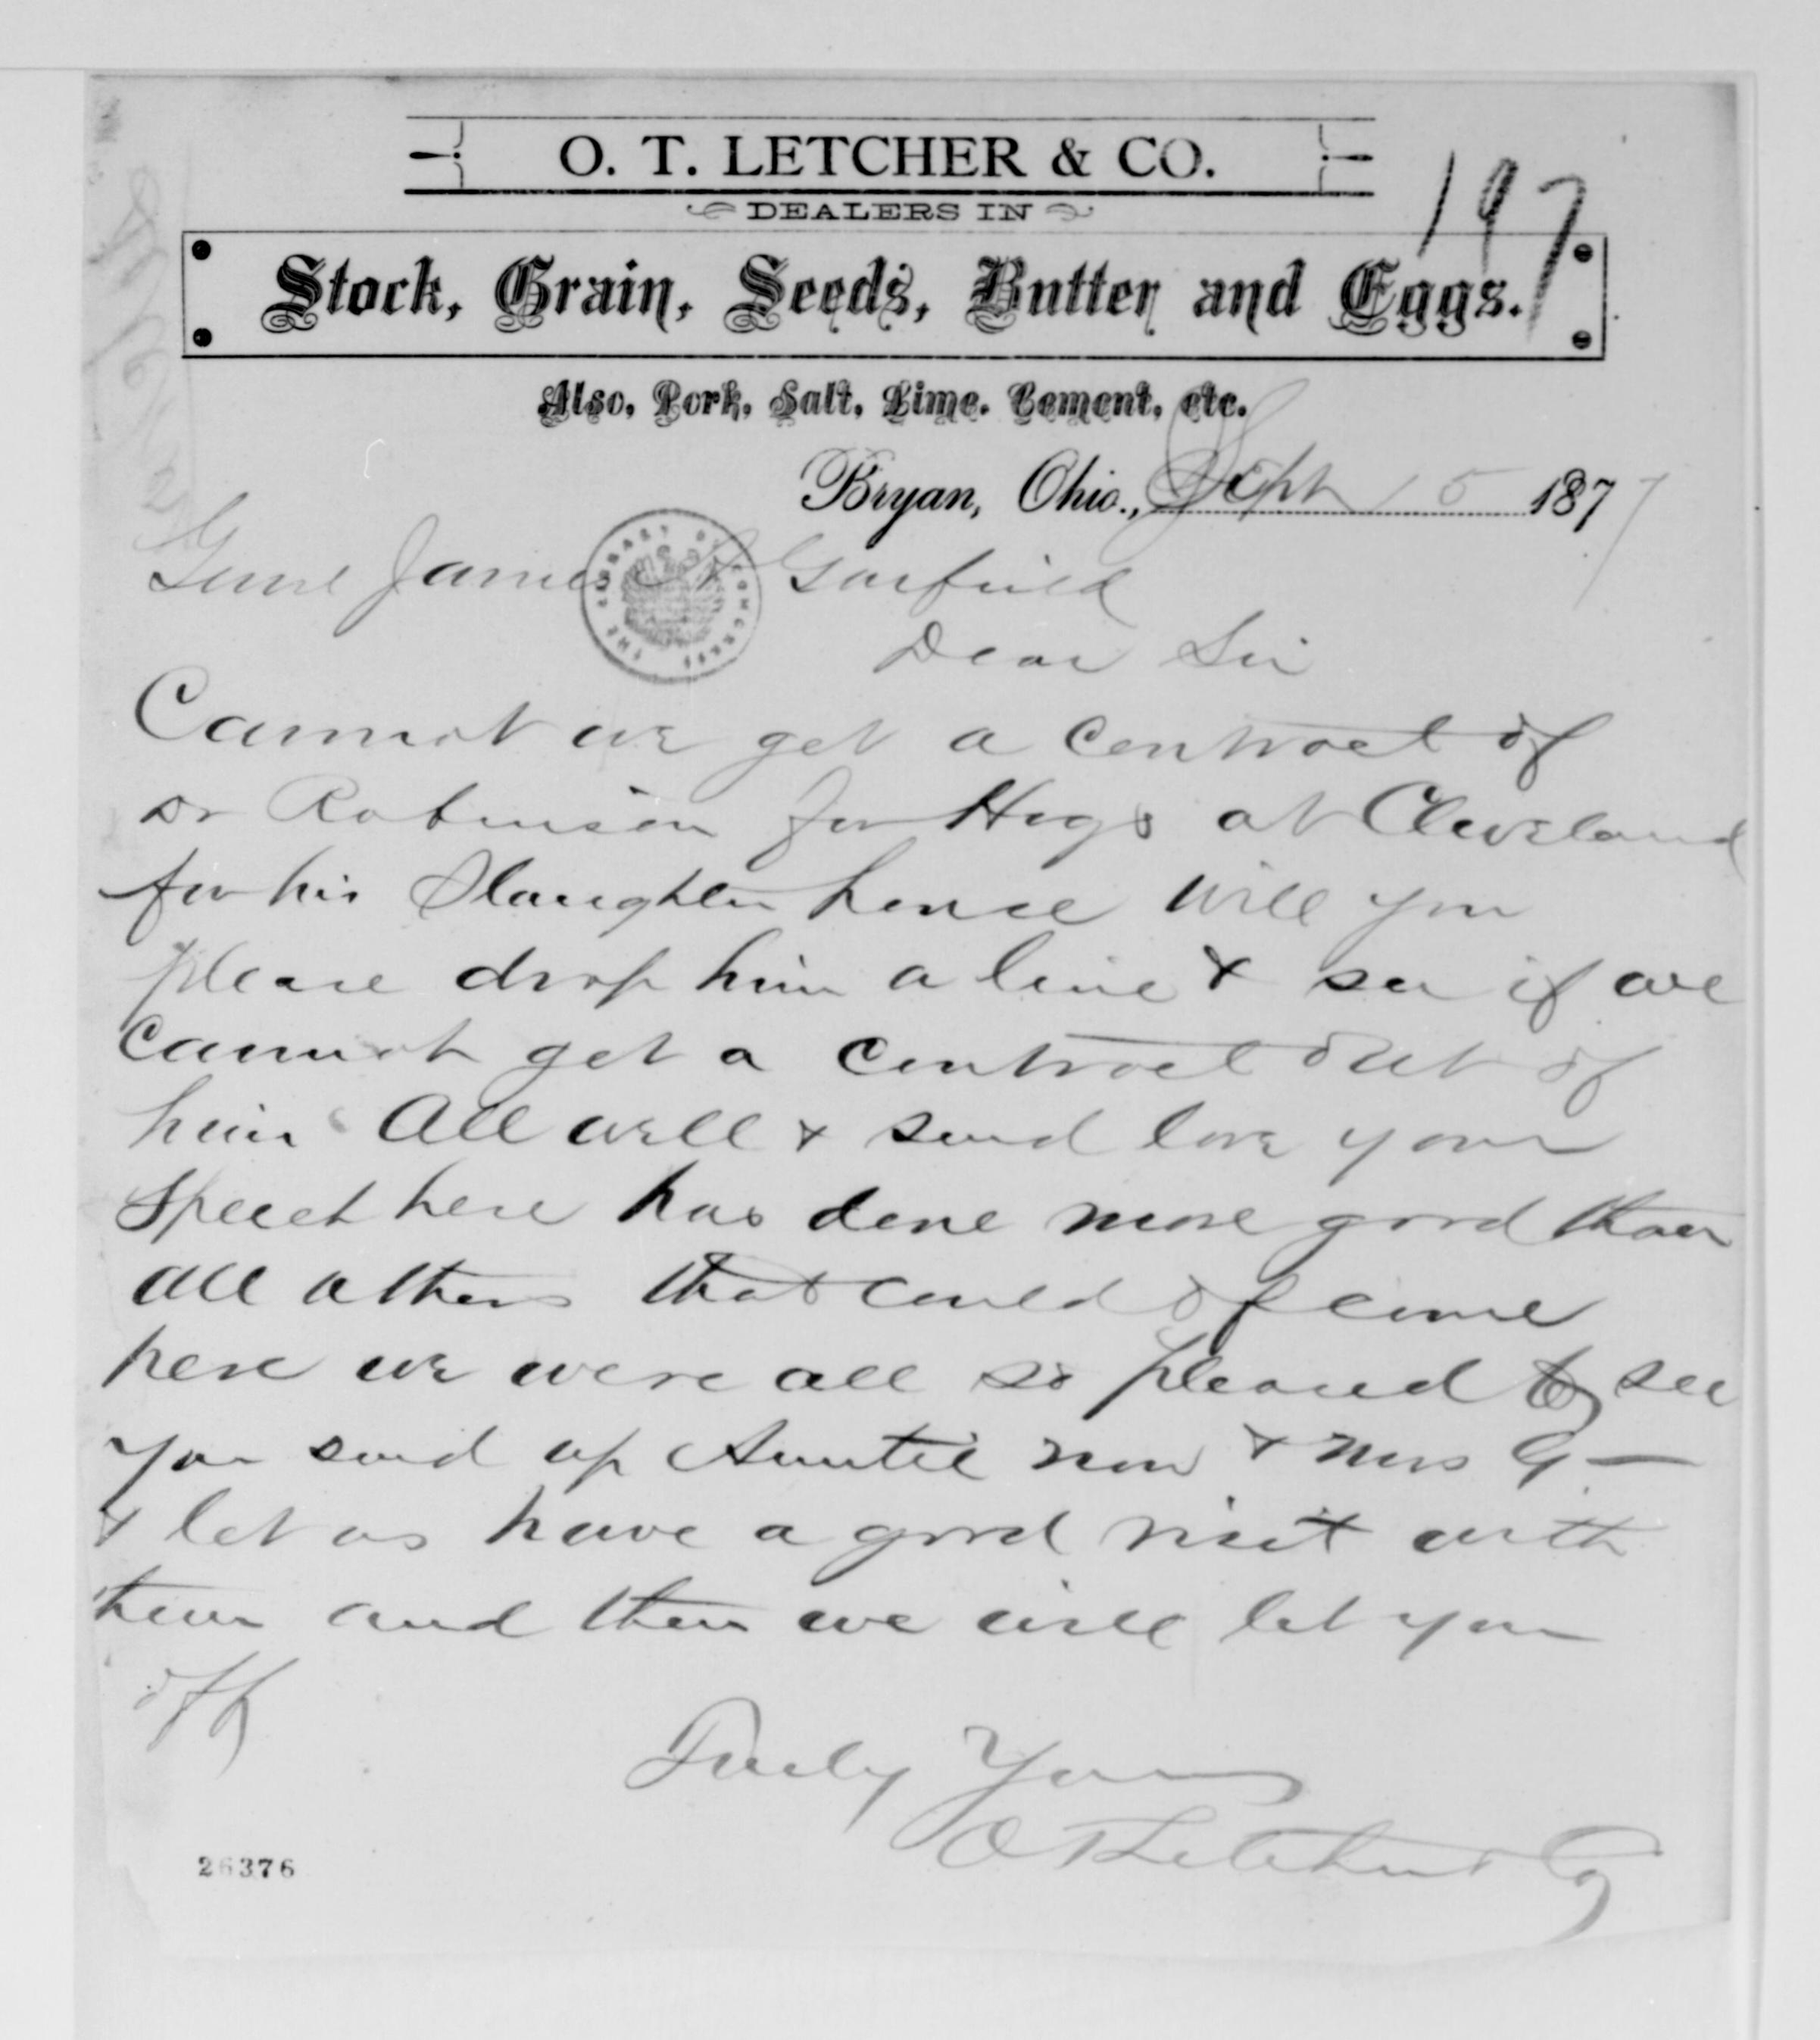 O. T. LETCHER & CO.
197
DEALERS IN
Stock, Grain, Seeds, Butter and Eggs.
Also, Pork, Salt, Lime. Cement, etc.
Bryan, Ohio., Sept 15 1877
Genl James A Garfield
Dear Sir
Cannot we get a contract of
Dr Robinson for Hogs at Cleveland
for his Slaughter house will you
please drop him a line & see if we
cannot get a contract out of
him All well & send love your
Speech here has done more good than
all others that could of come
here we were all so pleased to see
you send up Auntie now & Mrs G—
& let us have a good visit with
them and then we will let you
off
Truly Yours
O T Letcher & Co
THE LIBRARY OF CONGRESS
26376